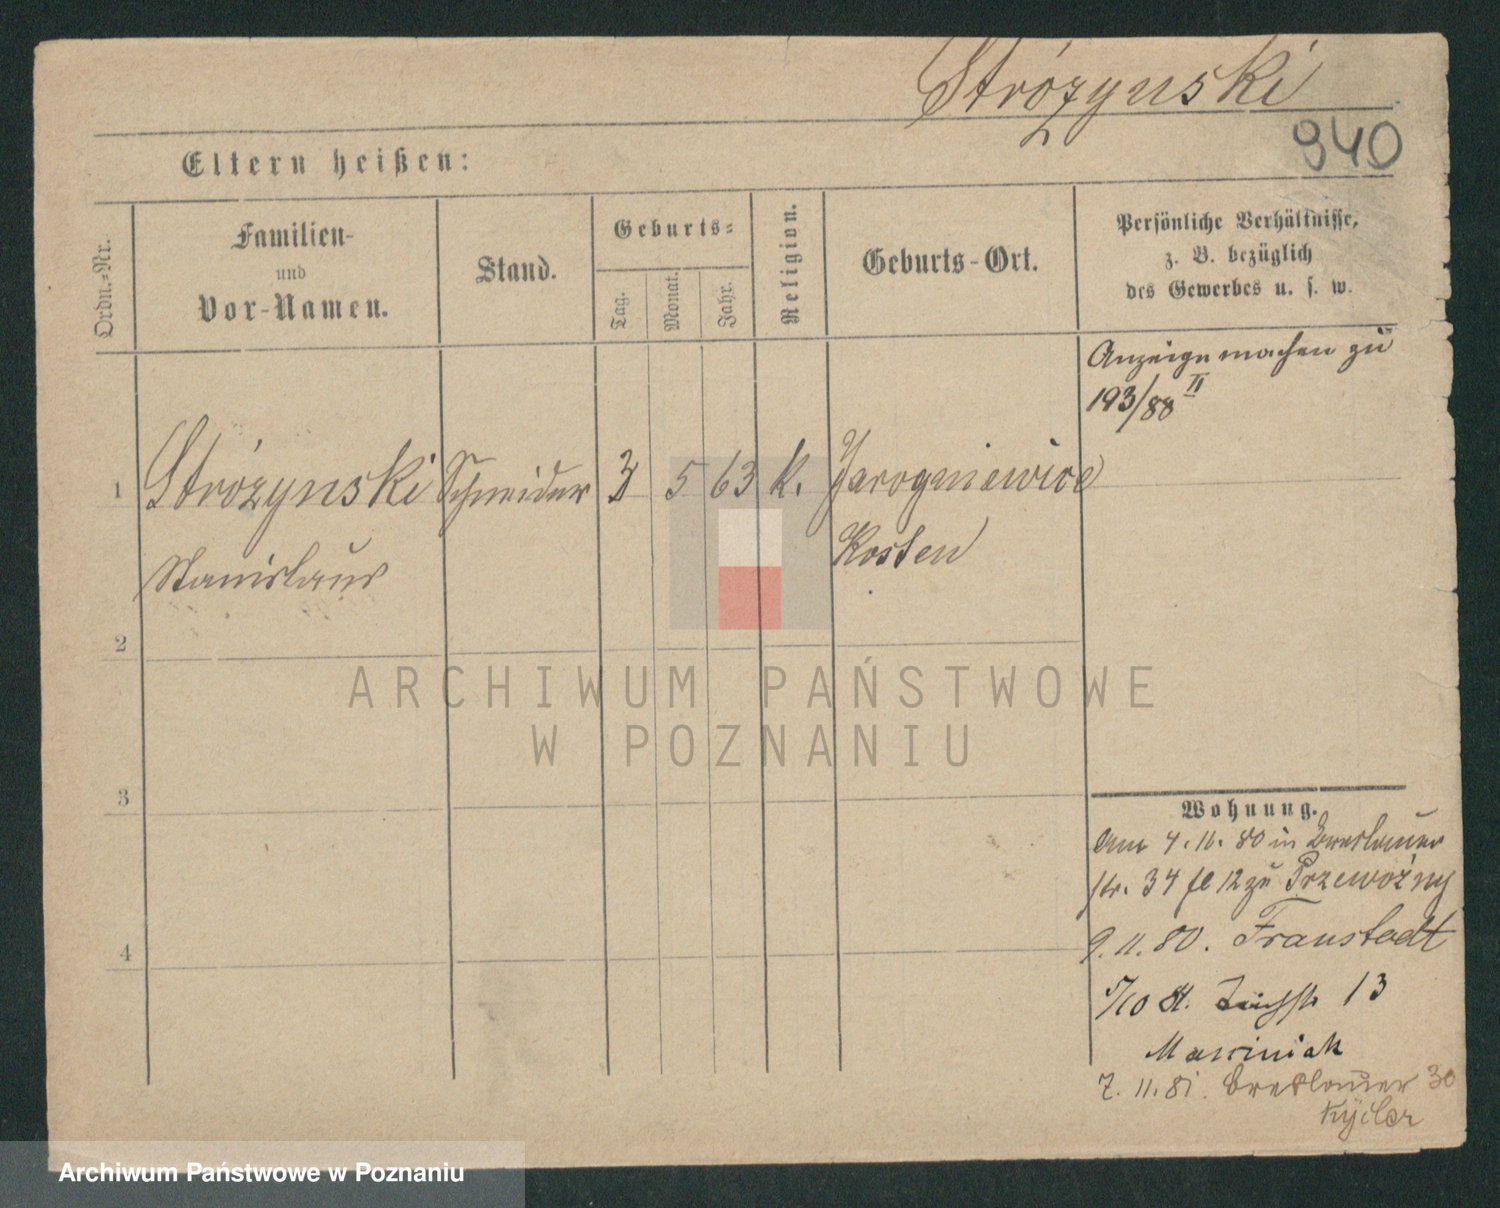 Stróżynski
940
Eltern heißen:
Ordn.-Nr.
Familien-
und
Vor-Namen.
Stand.
Geburts-
Tag.
Monat.
Jahr.
Religion.
Geburts-Ort.
Persönliche Verhältnisse,
z. B. bezüglich
des Gewerbes u. s. w.
Anzeige machen zu
193/88 II
1 Stróżynski Schneider 3 5 63 k. Jarogniewice
Stanislaus Kosten
2
3
4
Wohnung.
Am 4.11.80 in Breslauer
str. 34 12 zu Przewóżny
9.11.80. Fraustadt
5/10 81. 13
Marciniak
7.11.81. Breslauer 30
ARCHIWUM PAŃSTWOWE
W POZNANIU
Archiwum Państwowe w Poznaniu